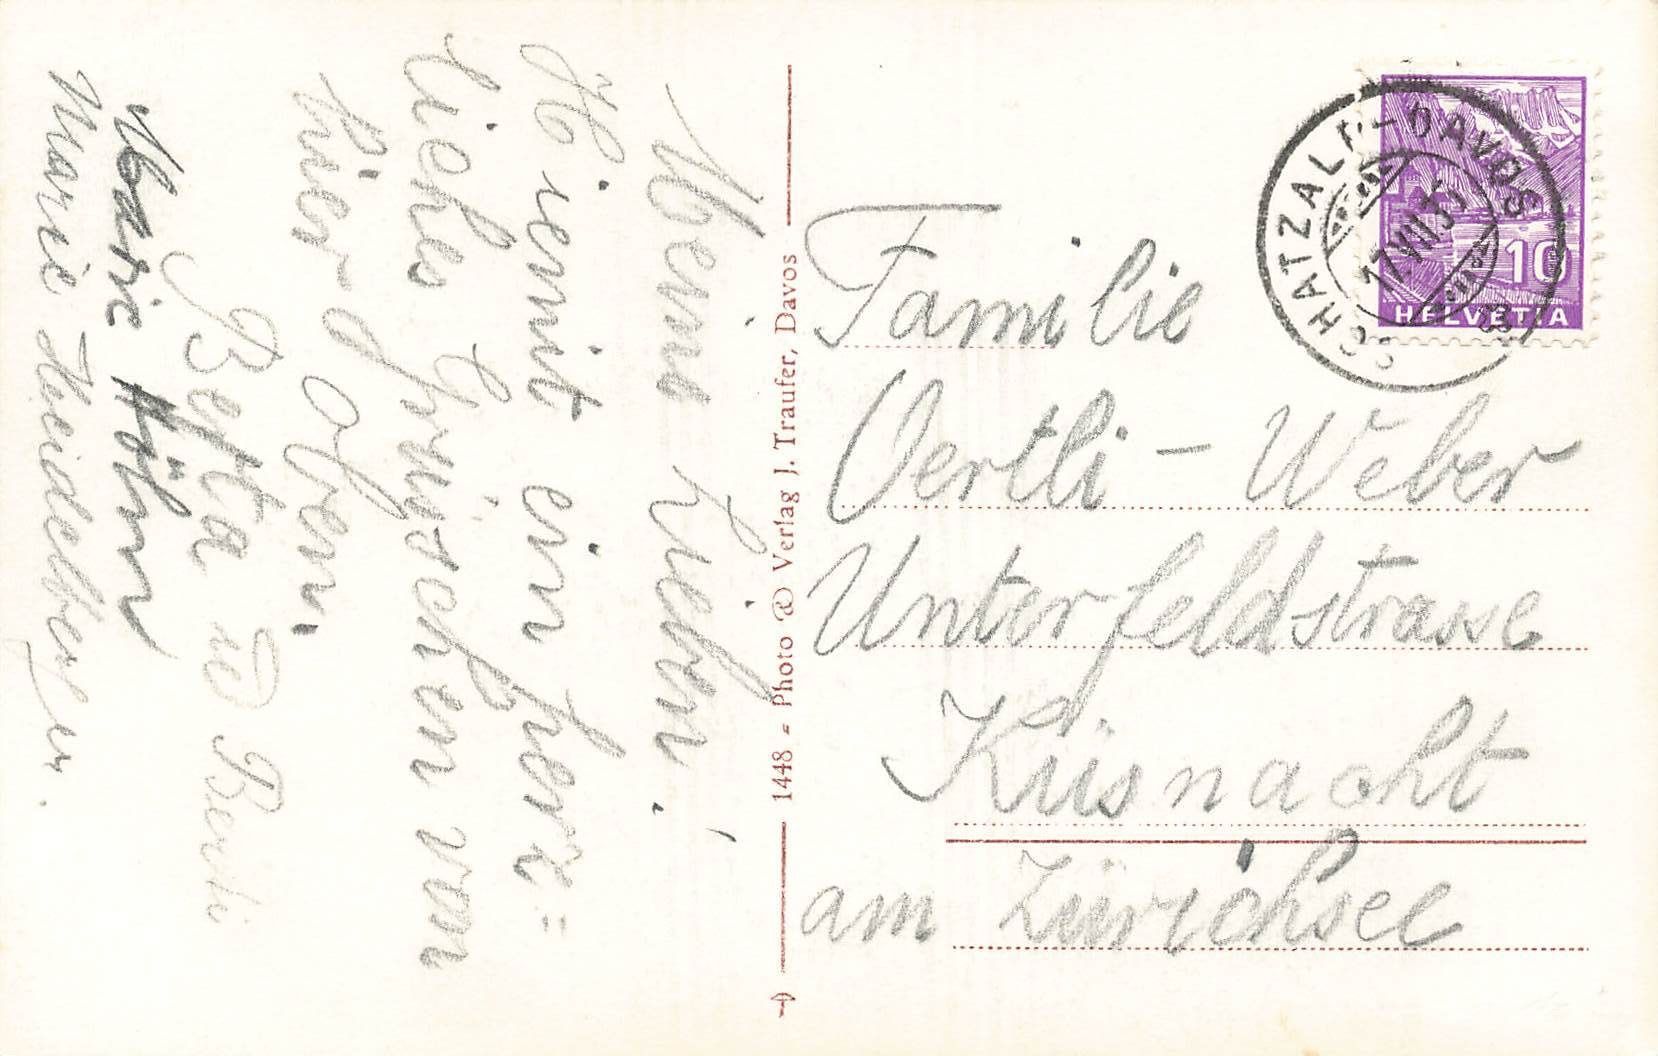 Meine Lieben.
Hiemit ein herz=
liches Grüschen von
hier oben.
Berti
Marie Höhn
Marie Heidelberger.
1448 - Photo & Verlag J. Traufer, Davos
SCHATZALP-DAVOS
17.VII.35
10
HELVETIA
Familie
Oertli - Weber
Unterfeldstrasse
Küsnacht
am Zürichsee